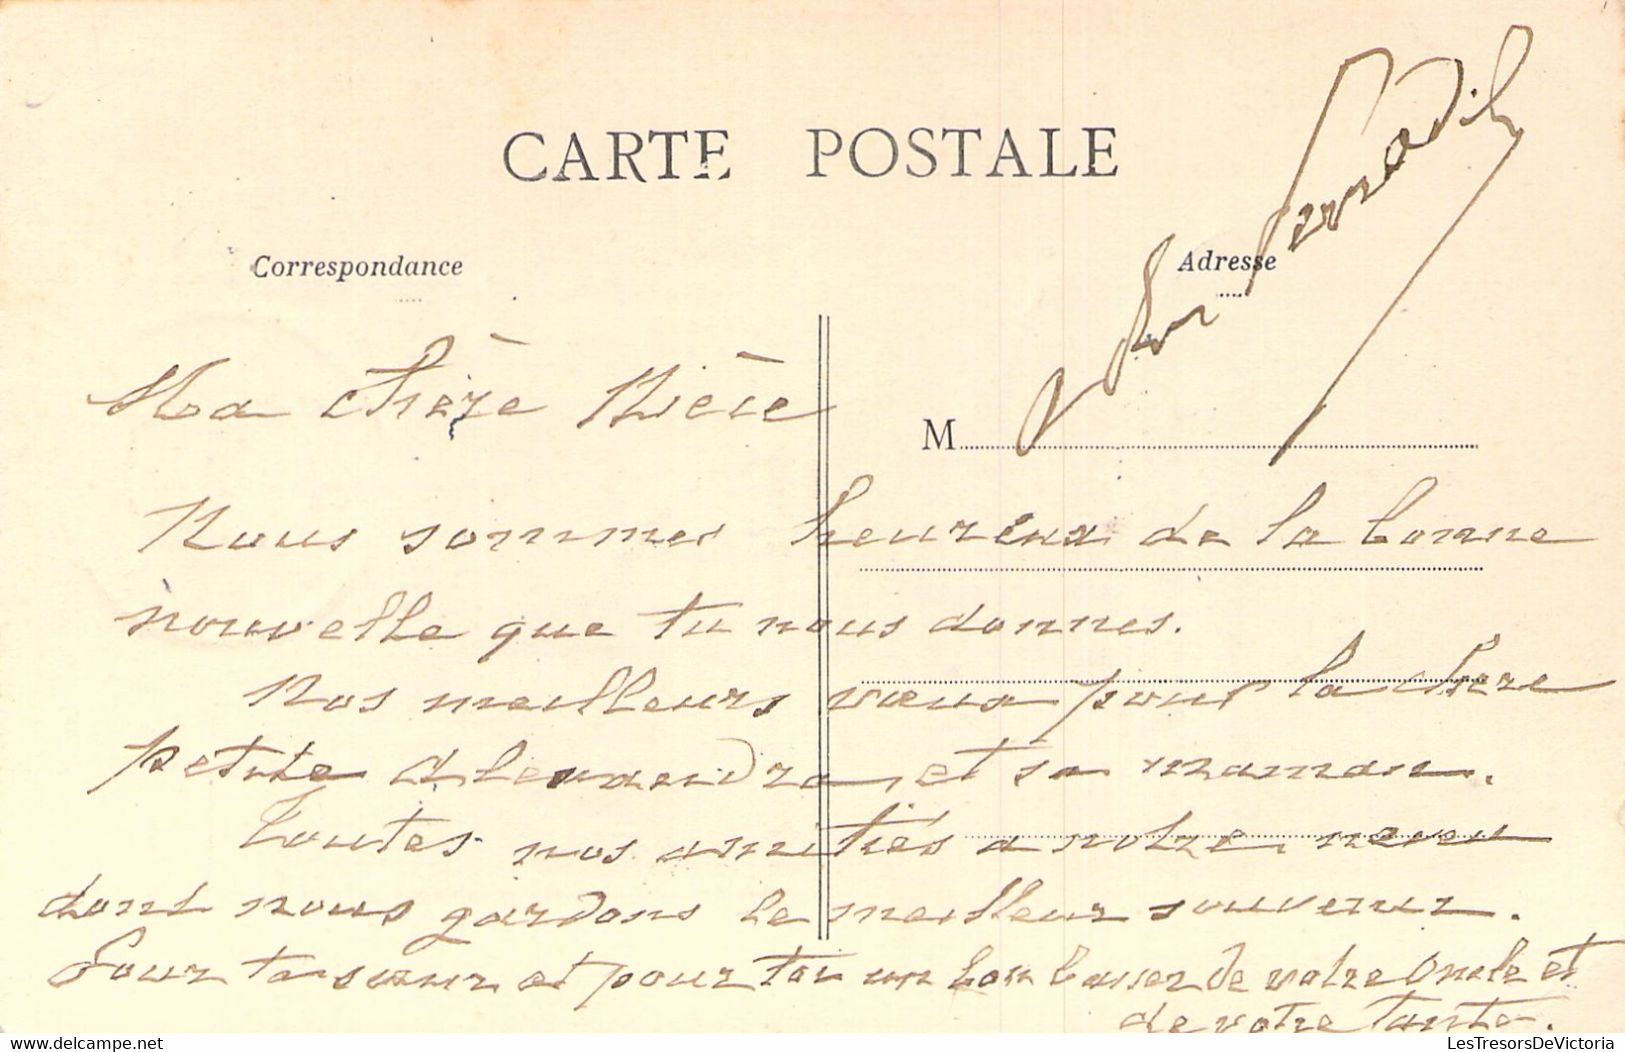 CARTE POSTALE
Correspondance
Adresse
M
Ma chère Nièce
Nous sommes heureux de la bonne
nouvelle que tu nous donnes.
Nos meilleurs vœux pour la chere
petite Alexandra, et sa maman.
Toutes nos amitiés a notre neveu
dont nous gardons le meilleur souvenir.
Pour ta sœur et pour toi un bon baiser de votre Oncle et
de votre tante.
delcampe.net
LesTresorsDeVictoria